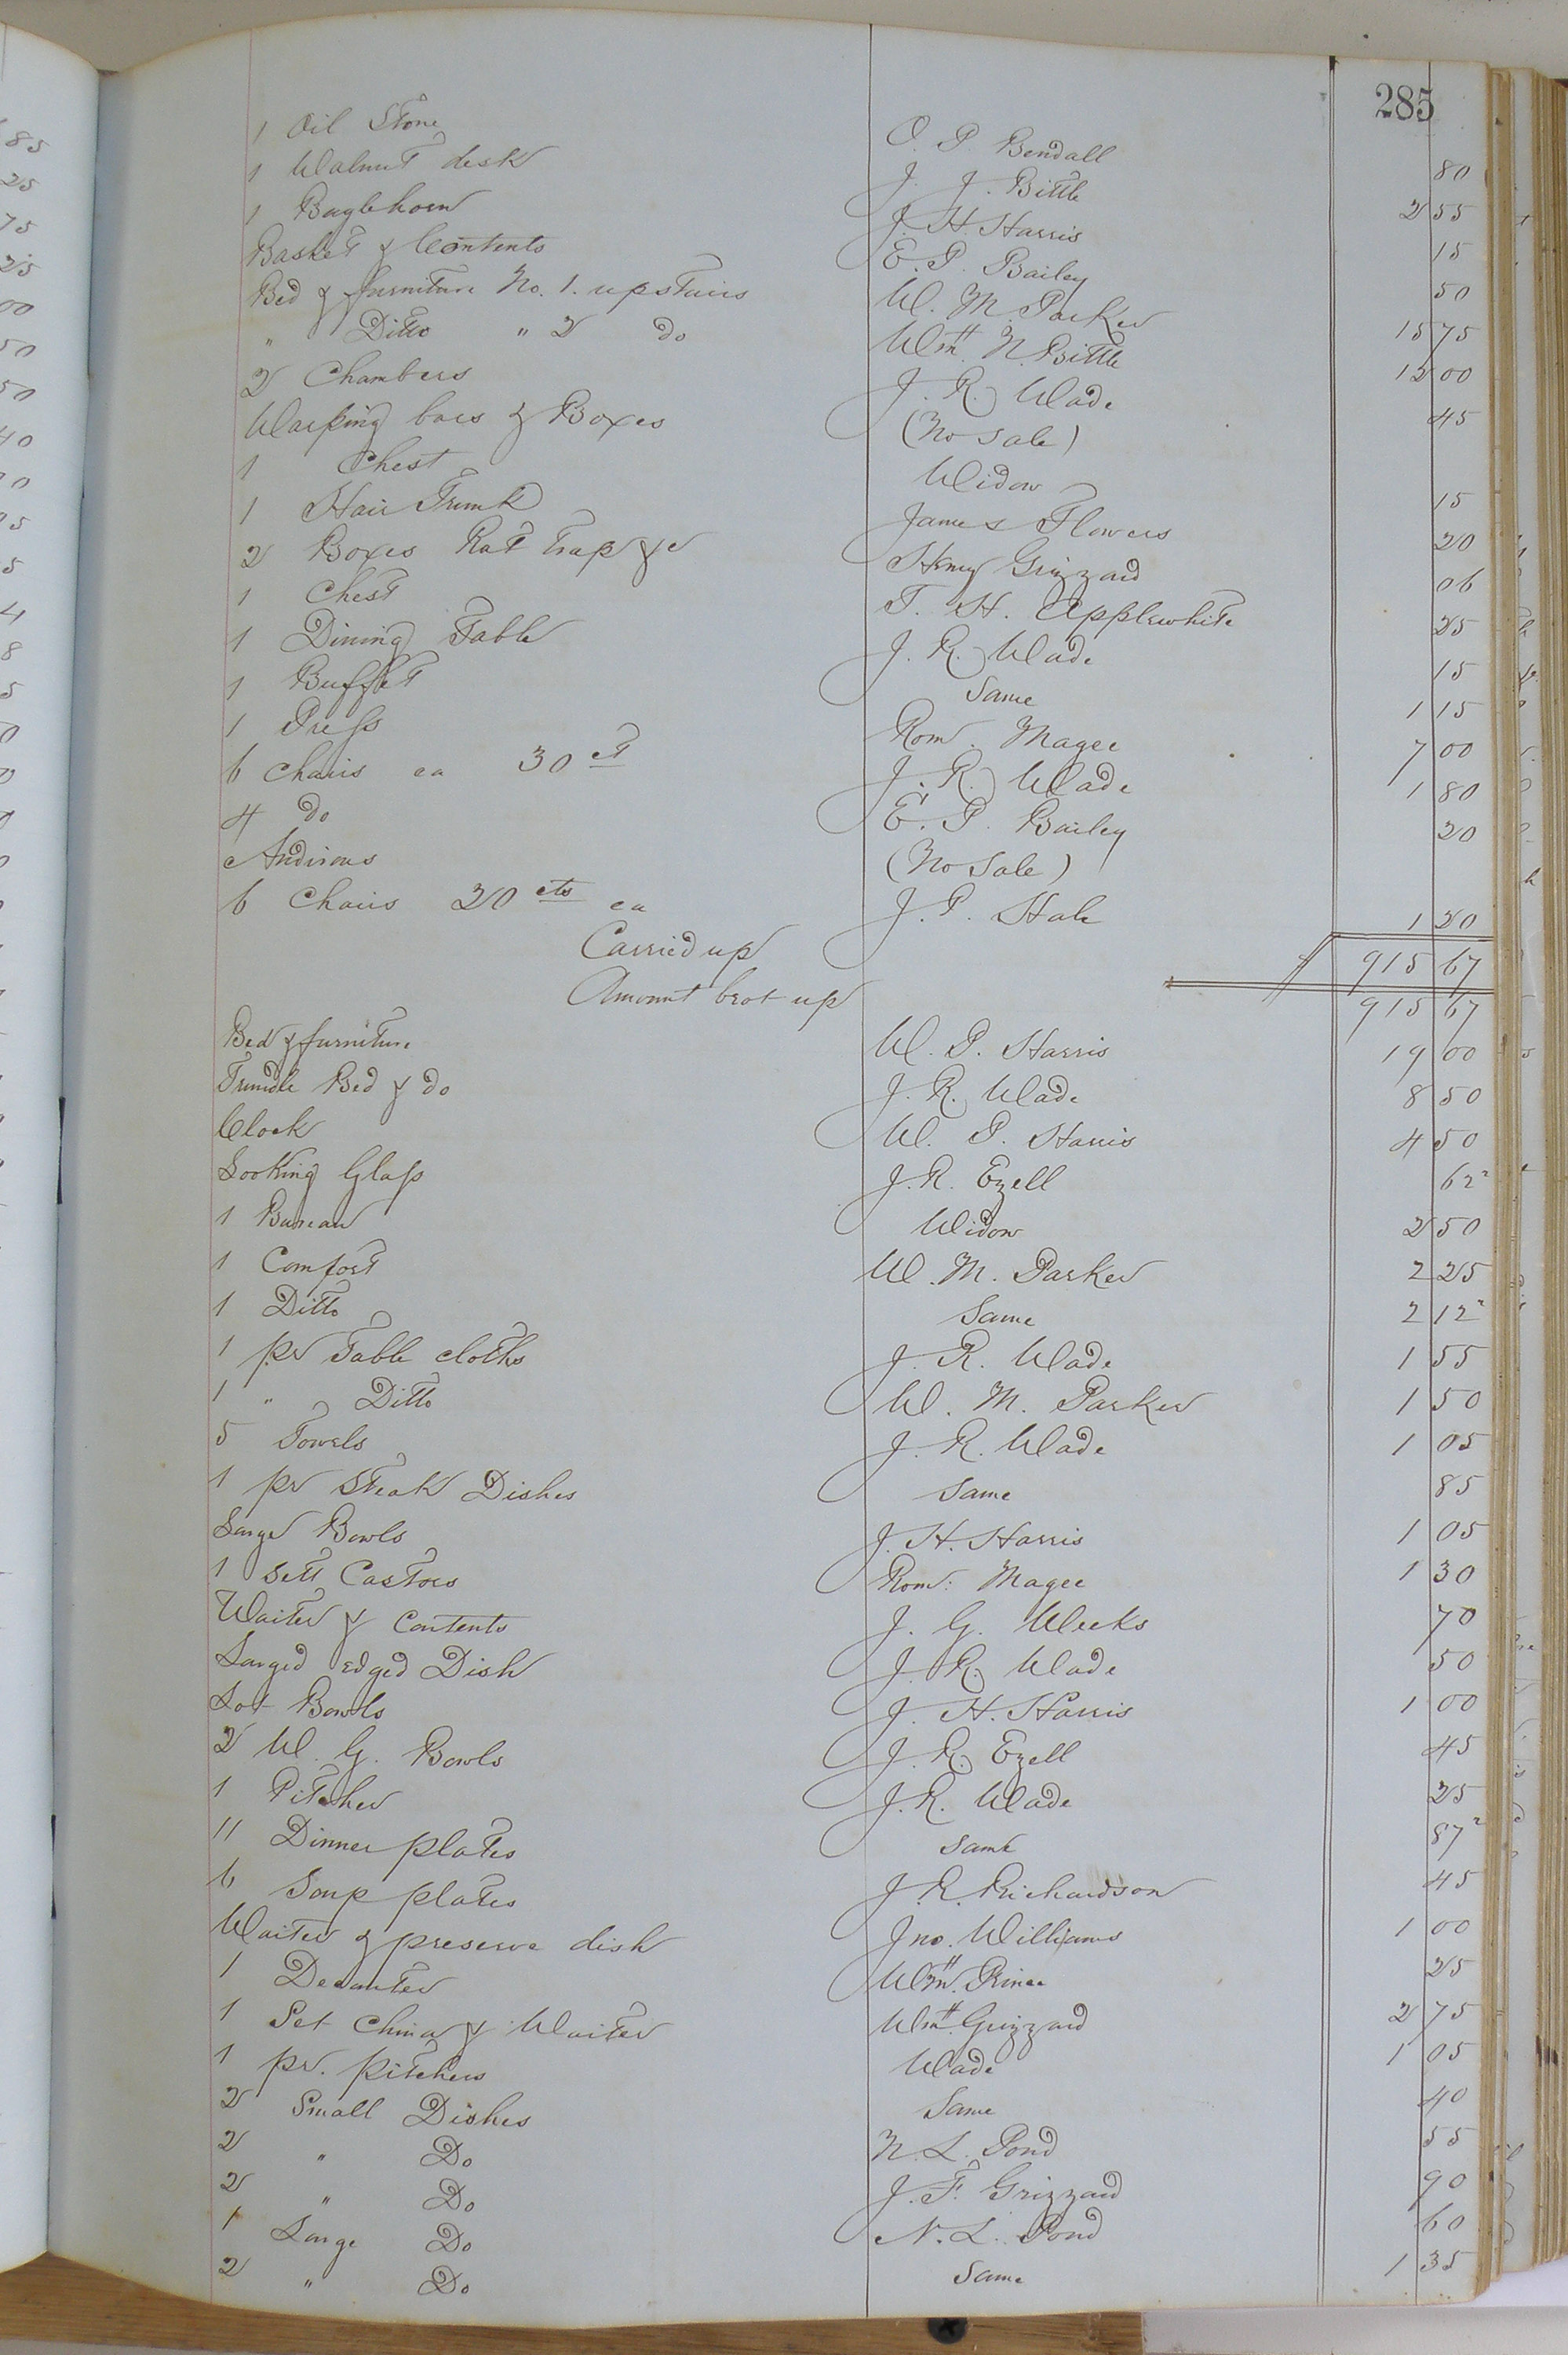 285
1 Oil Stone O. P. Bendall 80
1 Walnut desk J. J. Bittle 2 55
1 Buglehorn J. H Harris 15
Basket & Contents E. P. Bailey 50
Bed & furniture No. 1. upstairs W. M. Parker 15 75
" Ditto " 2 do Wm. N. Bittle 12 00
2 Chambers J. R. Wade 45
Warping bars & Boxes (No sale)
1 Chest Widow 15
1 Hair Trunk James Flowers 20
2 Boxes Rat trap &c Henry Grizzard 06
1 Chest T. H. Applewhite 25
1 Dining Table J. R. Wade 15
1 Buffet Same 1 15
1 Press Rowd. Magee 7 00
6 Chairs ea 30 ct J. R. Wade 1 80
4 do E. P. Bailey 20
Andirons (No Sale)
6 Chairs 20 cts ea J. P. Hale 1 20
Carried up 915 67
Amount brot up 915 67
Bed & furniture W. P. Harris 19 00
Trundle Bed & do J. R. Wade 8 50
Clock W. P. Harris 4 50
Looking Glass J. R. Ezell 62²
1 Bureau Widow 2 50
1 Comfort W. M. Parker 2 25
1 Ditto Same 2 12²
1 pr Table cloths J. R. Wade 1 55
1 " Ditto W. M. Parker 1 50
5 Towels J. R. Wade 1 05
1 pr Steak Dishes Same 85
Large Bowls J. H. Harris 1 05
1 Sett Castors Rowd: Magee 1 30
Waiter & Contents J. G. Weeks 70
Larged edged Dish J. R. Wade 50
Lot Bowls J. H. Harris 1 00
2 W. G. Bowls J. R. Ezell 45
1 Pitcher J. R. Wade 25
11 Dinner plates Same 87²
6 Soup plates J. R. Richardson 45
Waiter & preserve dish Jno. Williams 1 00
1 Decanter Wm. Prince 25
1 Set China & Waiter Wm. Grizzard 2 75
1 pr. pitchers Wade 1 05
2 Small Dishes Same 40
2 " Do N. L. Pond 55
2 " Do J. F. Grizzard 90
1 Large Do N. L. Pond 60
2 " Do Same 1 35